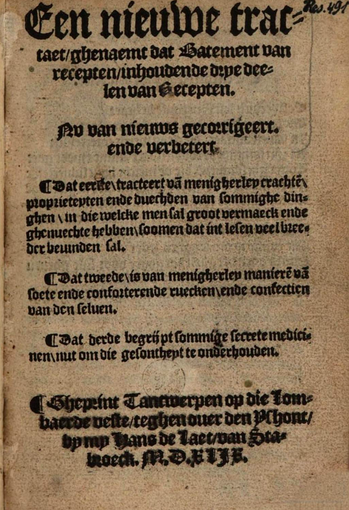 Een nieuwe trac-
Res. 491
taet/ghenaemt dat Batement van
recepten/inhoudende drye dee-
len van Recepten.
Nv van nieuws gecorrigeert.
ende verbetert.
¶Dat eerste/tracteert vā menigherley crachtē\
proprieteyten ende duechden van sommighe din-
ghen / in die welcke men sal groot vermaeck ende
ghenuechte hebben/soomen dat int lesen veel bree-
der beuinden sal.
¶Dat tweede/is van menigherley manierē vā
soete ende conforterende ruecken/ende confectien
van den seluen.
¶Dat derde begrijpt sommige secrete medici-
nen/nut om die gesontheyt te onderhouden.
¶Gheprint Tantwerpen op die Lom-
baerde veste/teghen ouer den Yshont/
by my Hans de Laet/van Sta-
broeck. M.D.XLIX.